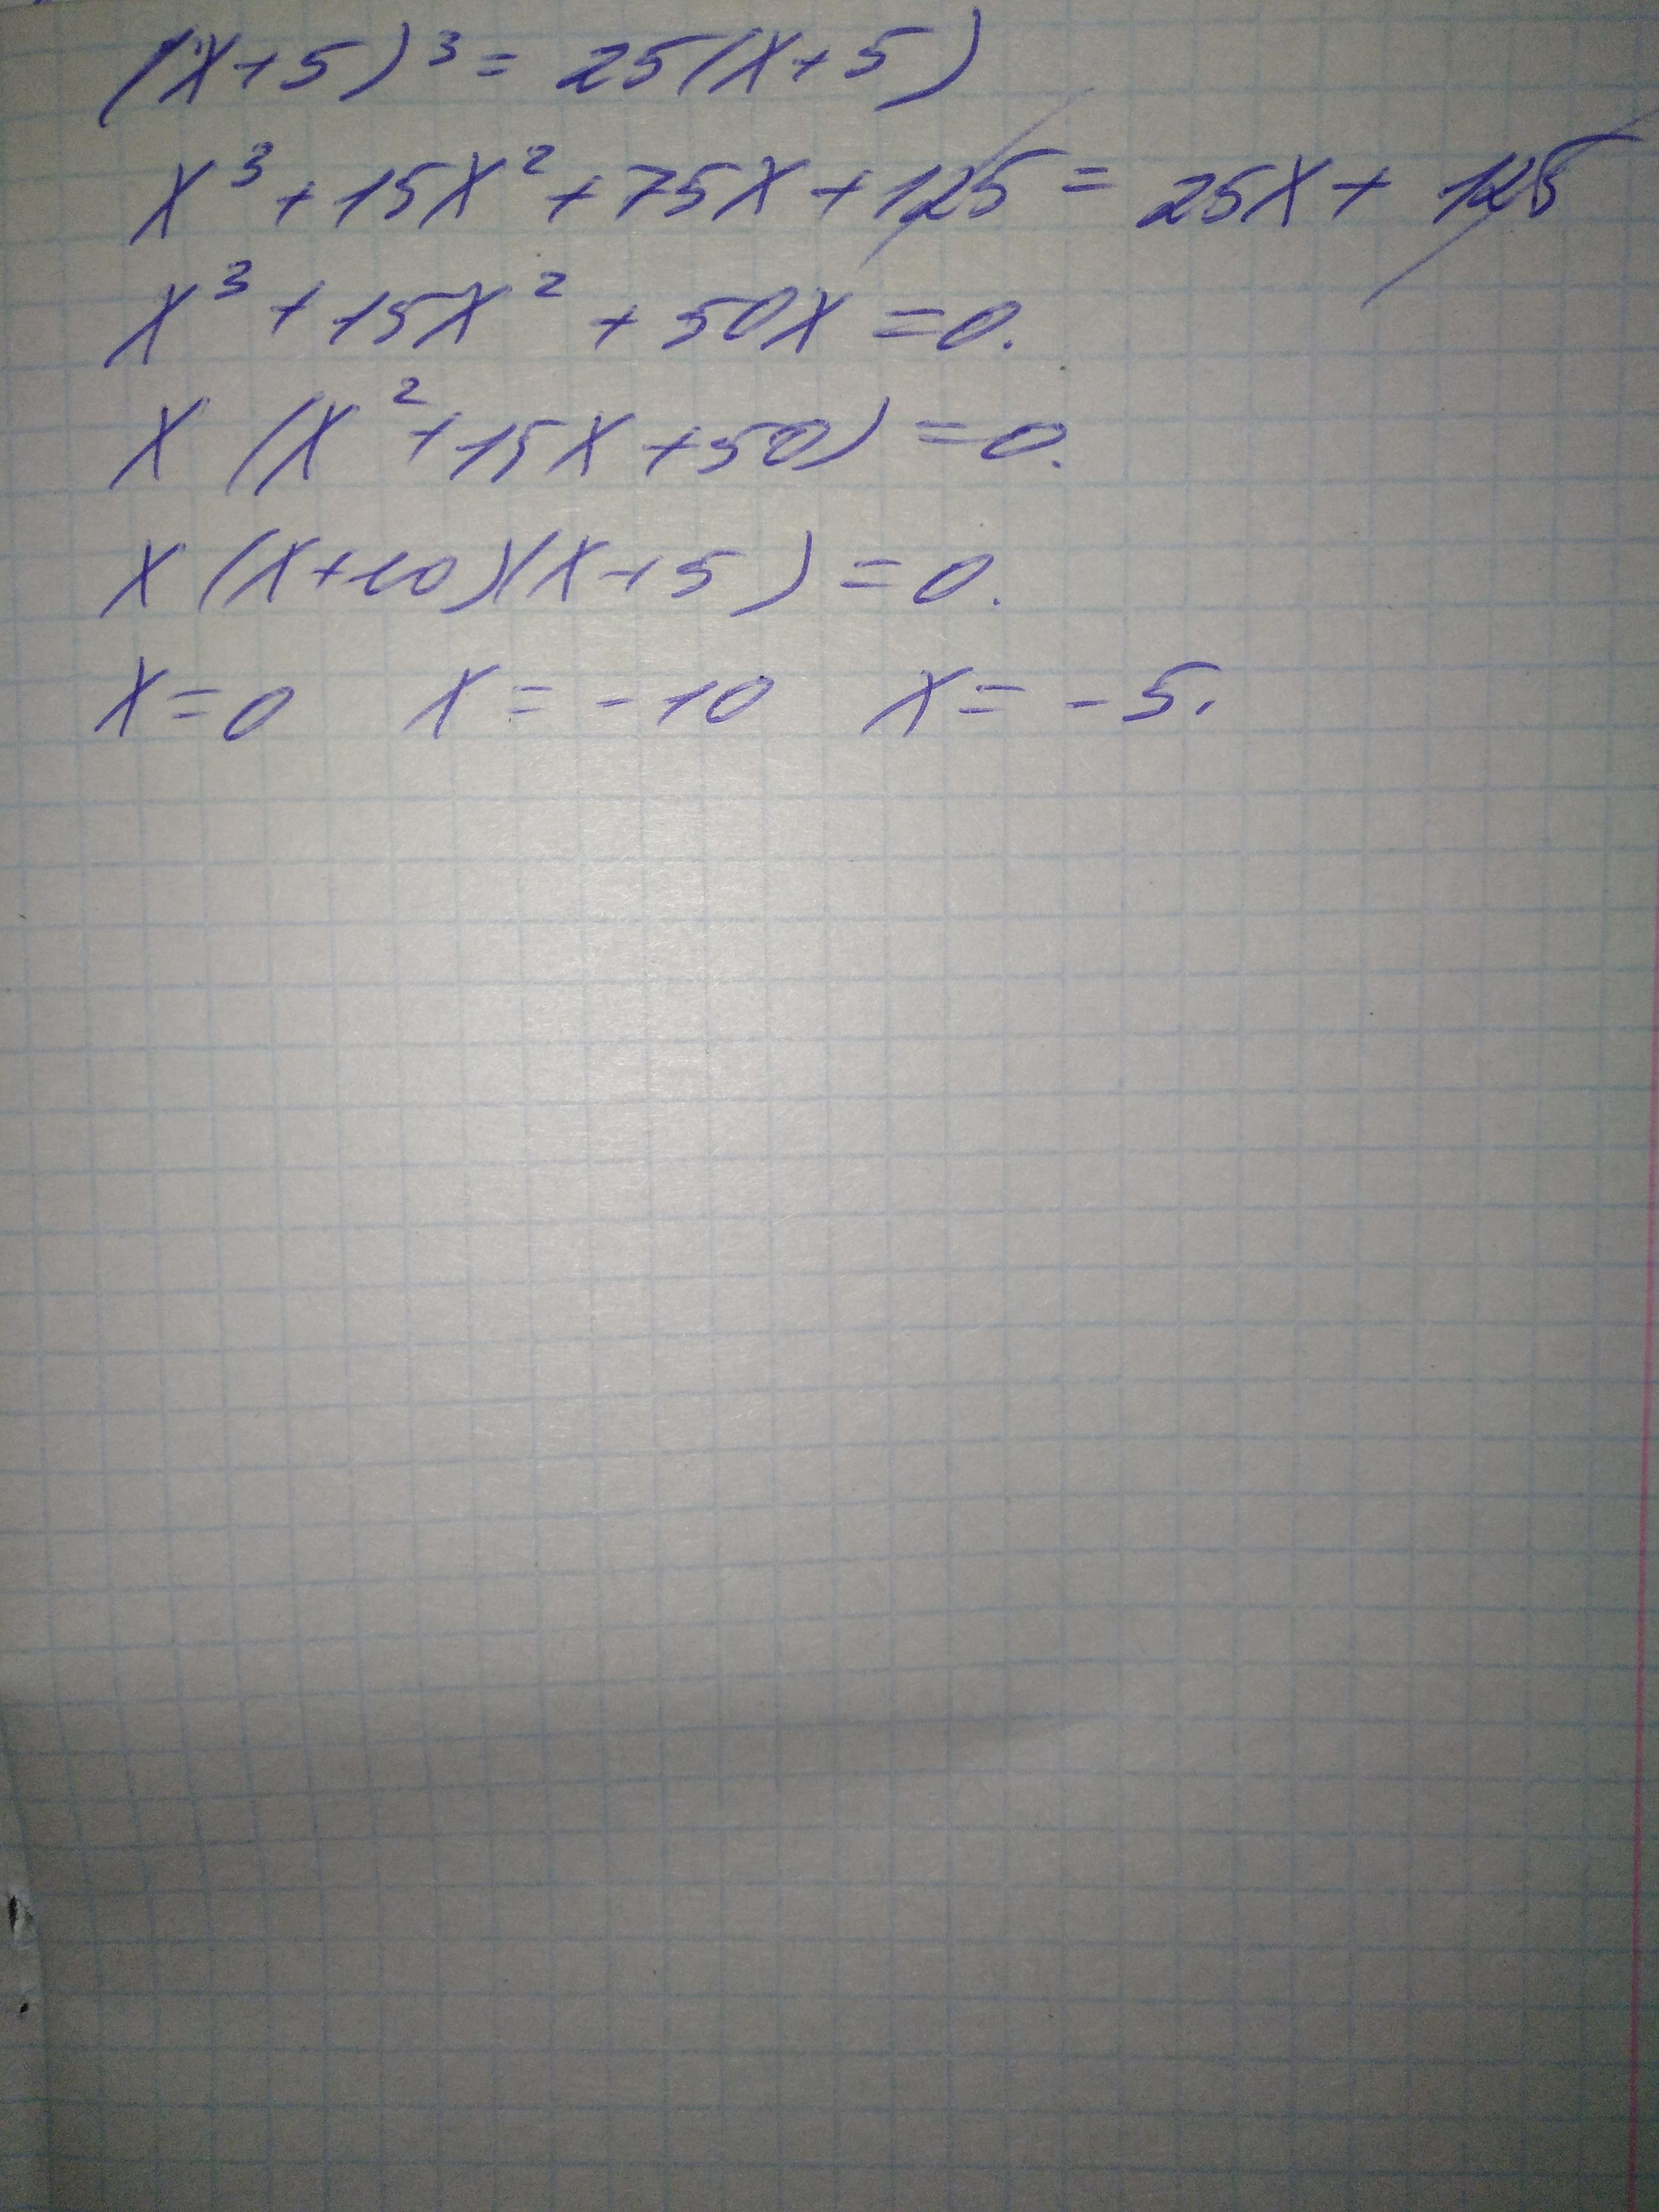 (x+5)³= 25(x+5)
x³+15x²+75x+125=25x+125
x³+15x²+50x=0.
x(x²+15x+50)=0.
x(x+10)(x+5)=0.
x=0 x=-10 x=-5.